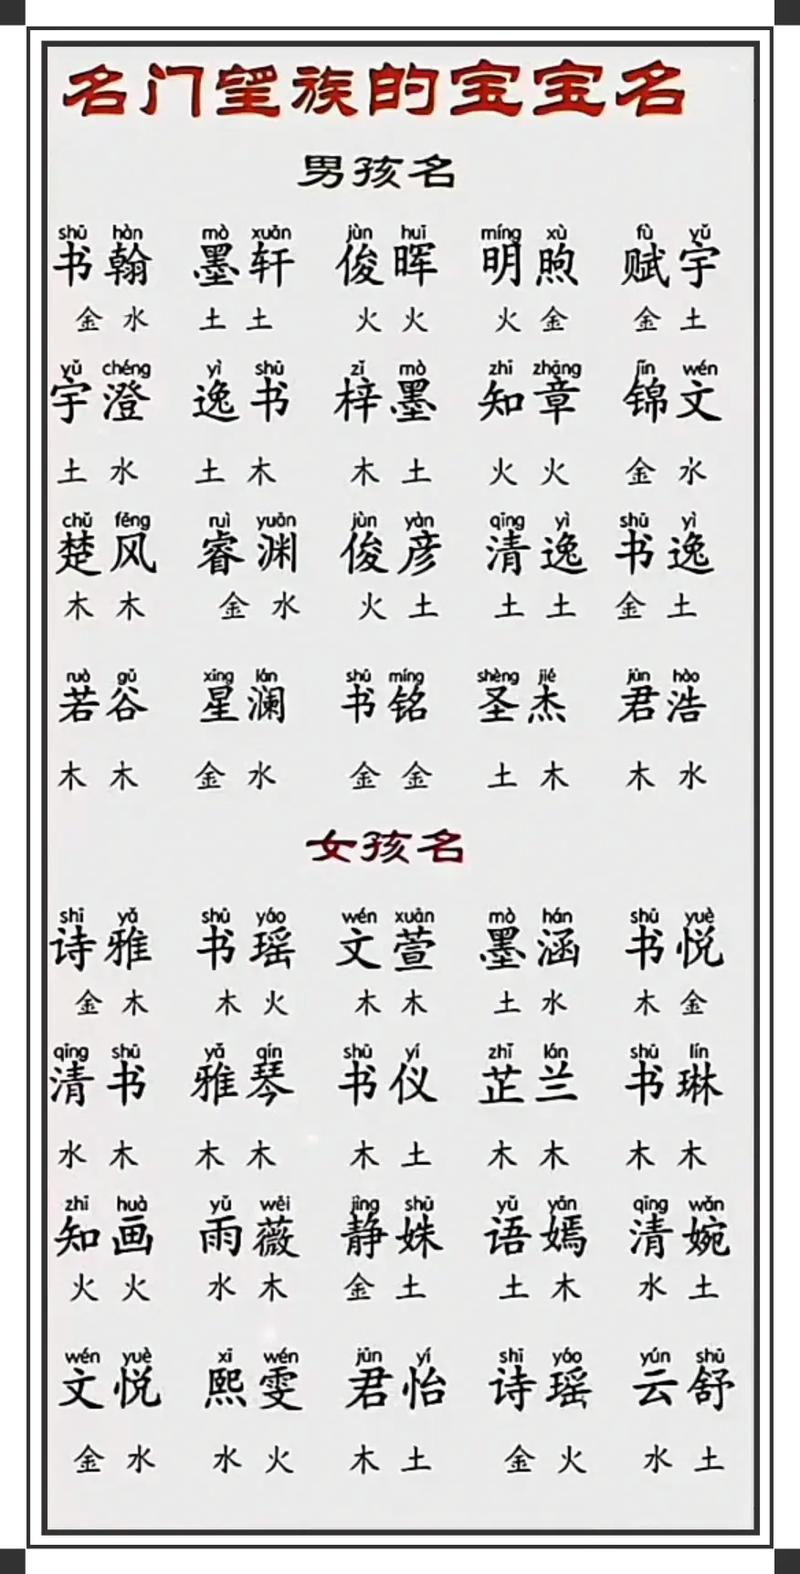 名门望族的宝宝名
男孩名
shū hàn mò xuān jùn huī míng xù fù yǔ
书翰 墨轩 俊晖 明煦 赋宇
金水 土土 火火 火金 金土
yǔ chéng yì shū zǐ mò zhī zhāng jǐn wén
宇澄 逸书 梓墨 知章 锦文
土水 土木 木土 火火 金水
chǔ fēng ruì yuān jùn yàn qīng yì shū yì
楚风 睿渊 俊彦 清逸 书逸
木木 金水 火土 土土 金土
ruò gǔ xīng lán shū míng shèng jié jūn hào
若谷 星澜 书铭 圣杰 君浩
木木 金水 金金 土木 木水
女孩名
shī yǎ shū yáo wén xuān mò hán shū yuè
诗雅 书瑶 文萱 墨涵 书悦
金木 木火 木木 土水 木金
qīng shū yǎ qín shū yí zhǐ lán shū lín
清书 雅琴 书仪 芷兰 书琳
水木 木木 木土 木木 木木
zhī huà yǔ wēi jìng shū yǔ yān qīng wǎn
知画 雨薇 静姝 语嫣 清婉
火火 水木 金土 土木 水土
wén yuè xī wén jūn yí shī yáo yún shū
文悦 熙雯 君怡 诗瑶 云舒
金水 水火 木土 金火 水土